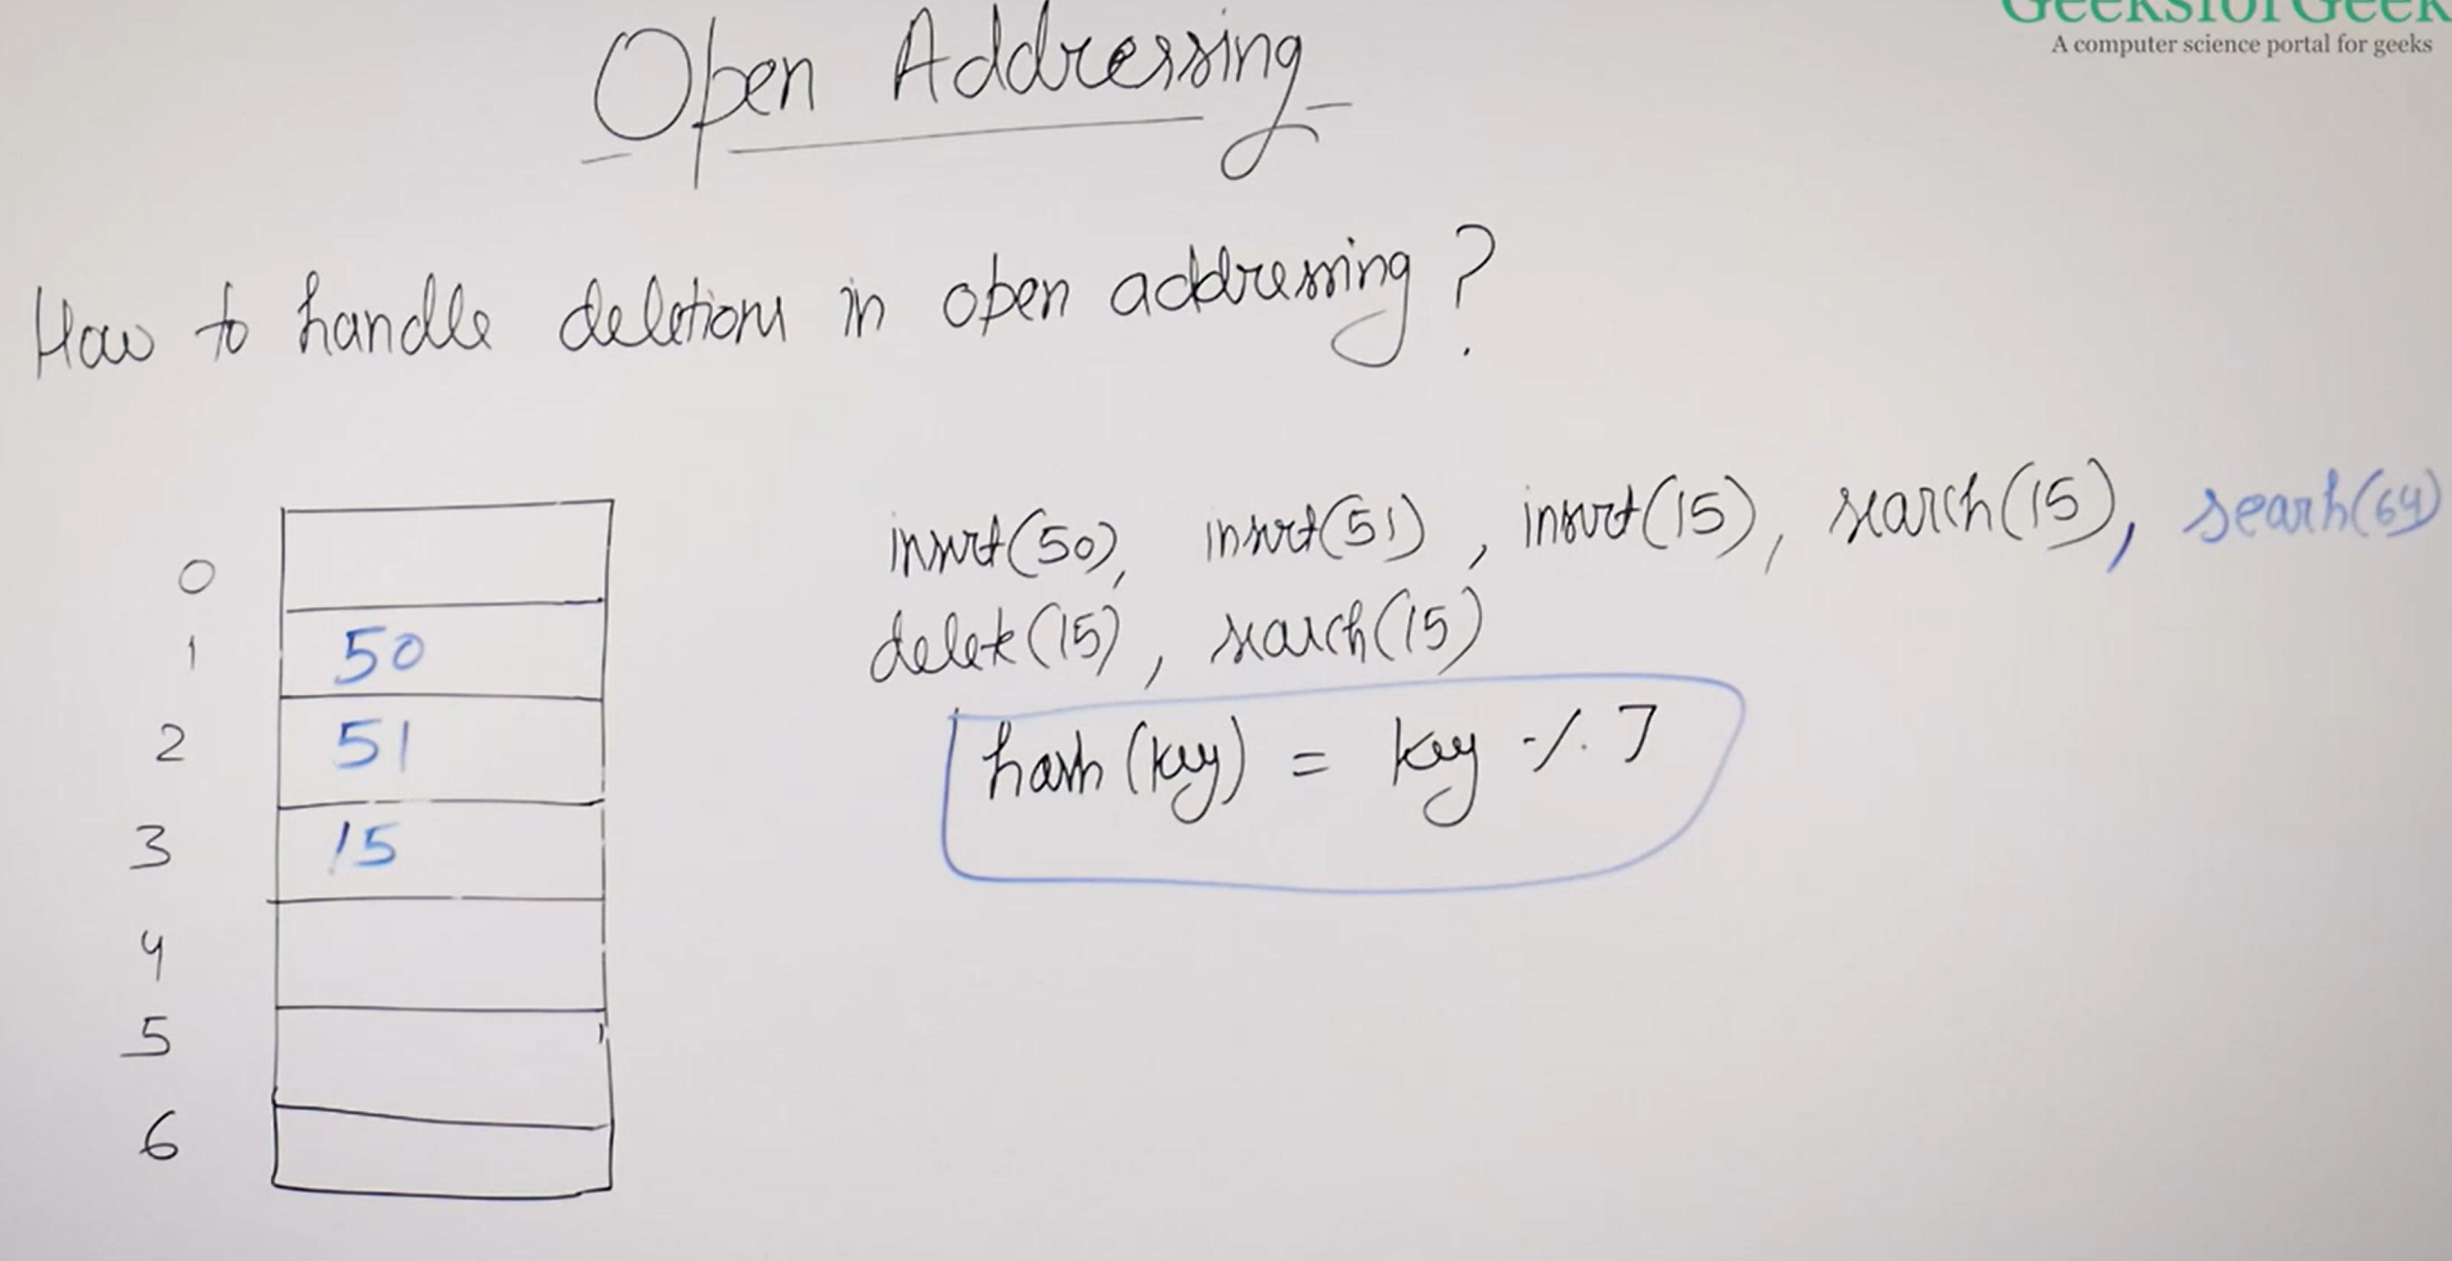 GeeksforGeek
A computer science portal for geeks
Open Addressing
How to handle deletions in open addressing ?
insert(50), insert(51), insert(15), search(15), searh(64)
delete(15), search(15)
hash(key) = key % 7
0
1 50
2 51
3 15
4
5
6